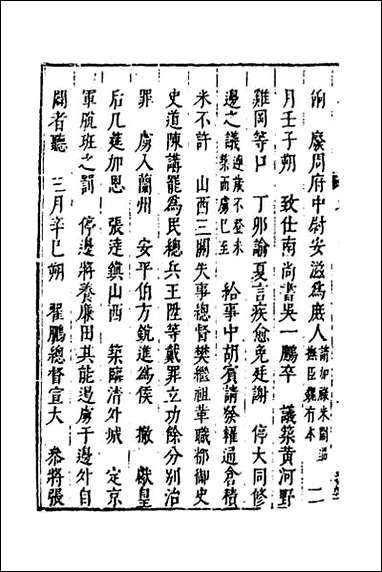 餉　廢周府中尉安㵂爲庶人
月壬子朔　致仕南尚書吳一鵬卒　議築黃河野
雞岡等口　丁卯諭夏言疾愈免廷謝　停大同修
邊之議連歲不登未築而虜已至　給事中胡賓請發權過倉積
米不許　山西三關失事總督樊繼祖革職都御史
史道陳講罷爲民總兵王陞等戴罪立功餘分別治
罪　虜入蘭州　安平伯方銳進爲侯　撤獻皇
后几筵加恩　張達鎮山西　築臨清外城　定京
軍脫班之罰　停邊將養廉田其能邊虜于邊外自
闢者聽　三月辛巳朔　翟鵬總督宣大　叅將張